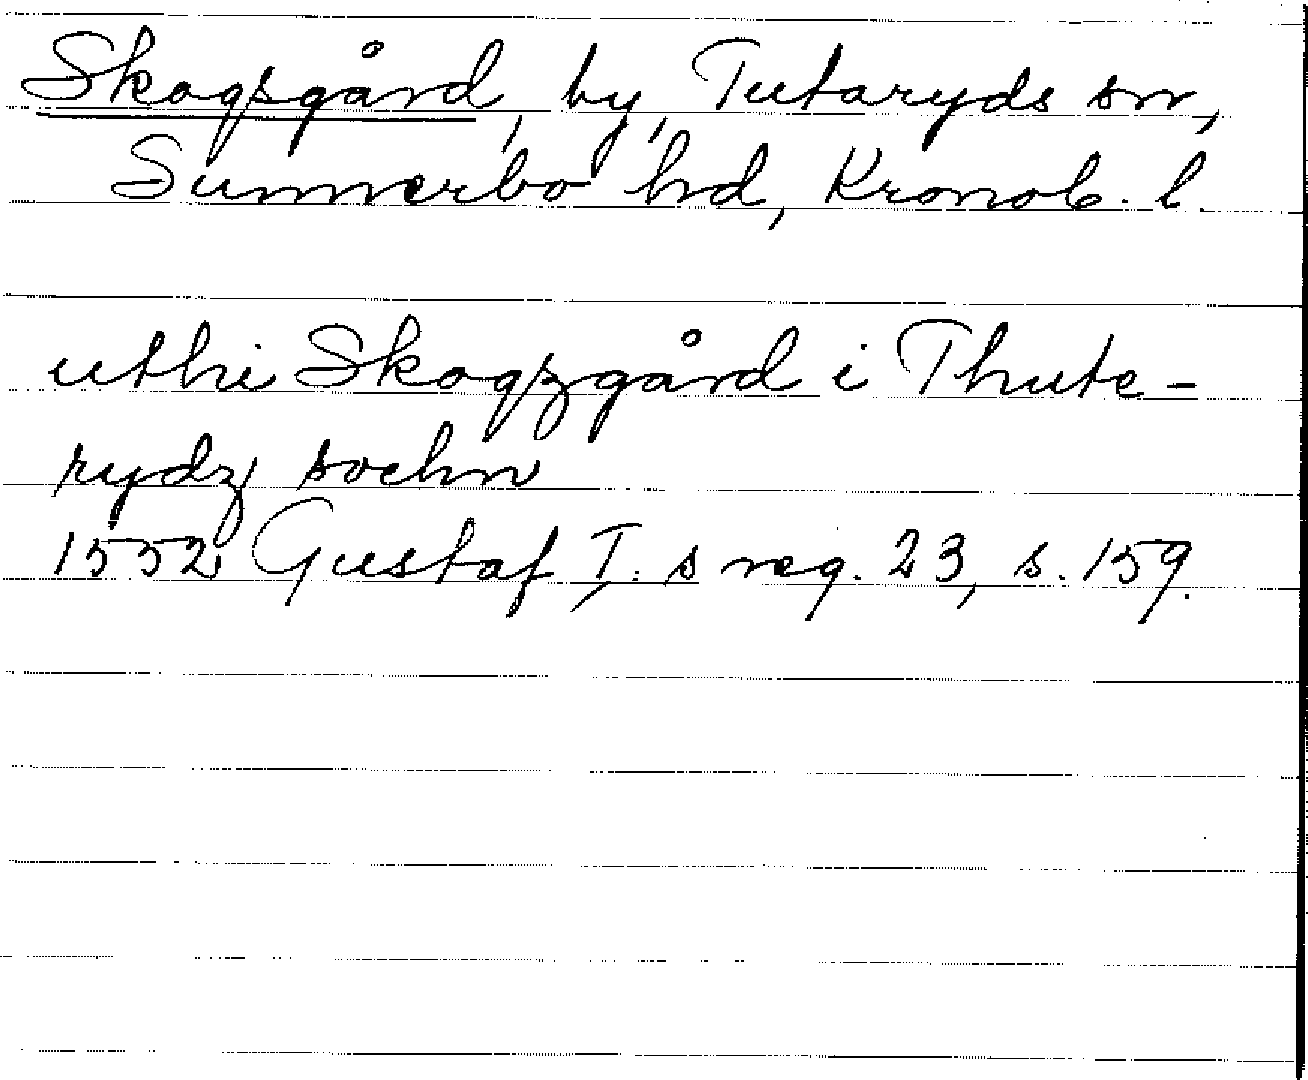 Skogsgård, by, Tutaryds sn,
Sunnerbo hd, Kronob. l.
uthi Skogzgård i Thute-
rydz sochn
1552 Gustaf I:s reg. 23, s. 159.